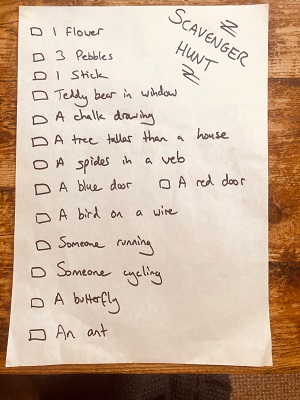 SCAVENGER
HUNT
1 flower
3 Pebbles
1 Stick
Teddy bear in window
A chalk drawing
A tree taller than a house
A spider in a web
A blue door A red door
A bird on a wire
Someone running
Someone cycling
A butterfly
An ant